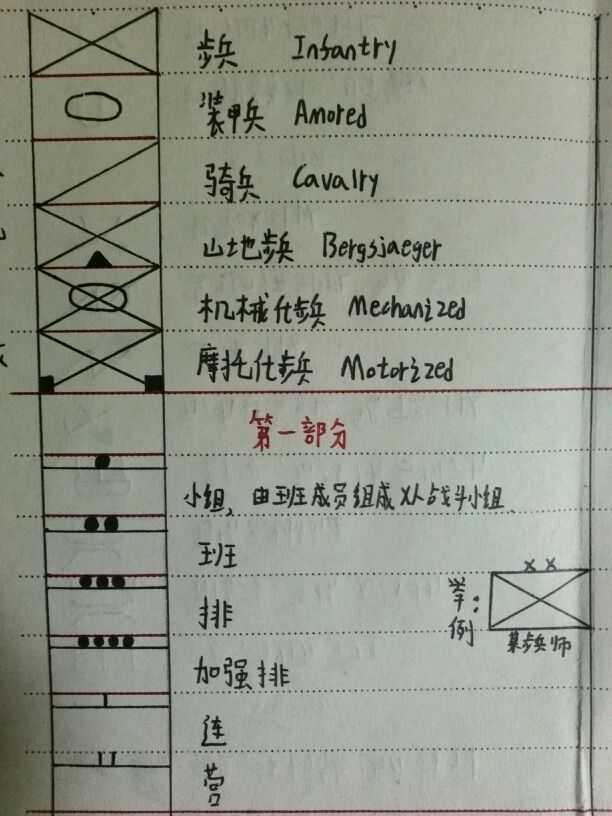 步兵 Infantry
装甲兵 Amored
骑兵 Cavalry
山地步兵 Bergsjaeger
机械化步兵 Mechanized
摩托化步兵 Motorized
第一部分
小组,由班成员组成X人战斗小组.
班
排
加强排
连
营
举例:
xx
某步兵师